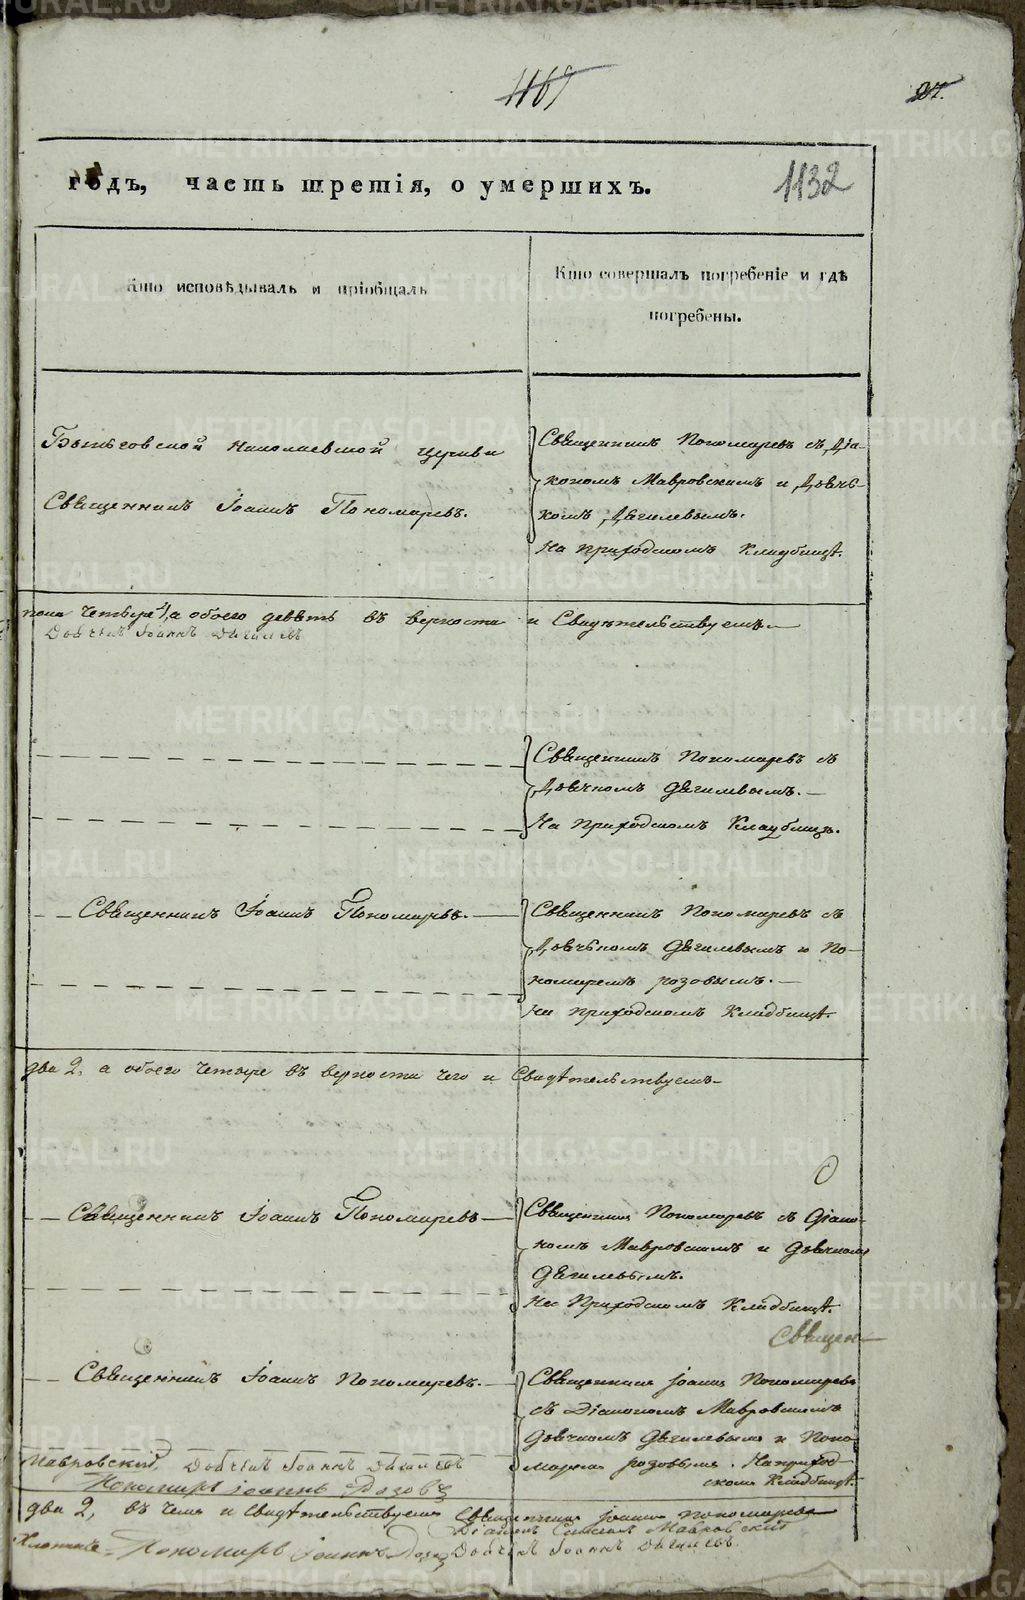 1169
27.
годъ, часть третія, о умершихъ.
1132
Кто исповѣдывалъ и пріобщалъ
Кто совершалъ погребеніе и гдѣ
погребены.
Николаевской церкви
Священникъ Іоаннъ Пономаревъ.
Священникъ Пономаревъ съ Діа-
кономъ Мавровскимъ и Дьяч-
комъ Дягилевымъ.
На приходскомъ кладбищѣ.
пола четыре 4, а обоего девять въ верности и Свидѣтельствуемъ
Дьячекъ Іоаннъ Дягилевъ
Священникъ Пономаревъ съ
Дьячкомъ Дягилевымъ.
На приходскомъ кладбищѣ.
Священникъ Іоаннъ Пономаревъ.
Священникъ Пономаревъ съ
Дьячкомъ Дягилевымъ и По-
номаремъ Розовымъ.
На приходскомъ кладбищѣ.
два 2, а обоего четыре въ верности чего и Свидѣтельствуемъ
Священникъ Іоаннъ Пономаревъ
Священникъ Пономаревъ съ Діако-
номъ Мавровскимъ и Дьячкомъ
Дягилевымъ.
На приходскомъ кладбищѣ.
Священ-
Священникъ Іоаннъ Пономаревъ.
Священникъ Іоаннъ Пономаревъ
съ Діакономъ Мавровскимъ
Дьячкомъ Дягилевымъ и Поно-
маремъ Розовымъ. На приход-
скомъ кладбищѣ.
Мавровскій, Дьячекъ Іоаннъ Дягилевъ
Пономарь Іоаннъ Розовъ
два 2, въ чемъ и свидѣтельствуемъ Священникъ Іоаннъ Пономаревъ
Діаконъ Мавровскій
Пономарь Іоаннъ Розовъ Дьячекъ Іоаннъ Дягилевъ.
METRIKI.GASO-URAL.RU